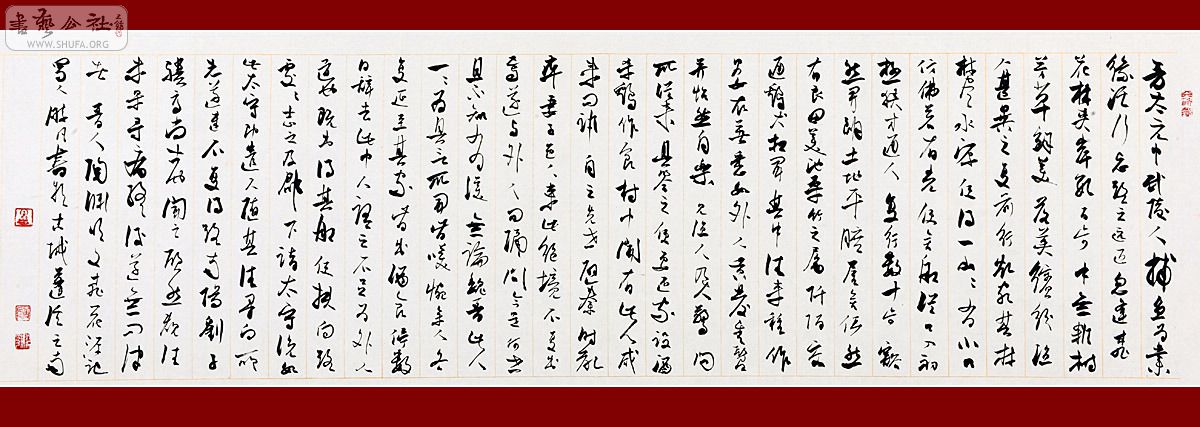 書藝公社
WWW.SHUFA.ORG
晉太元中武陵人捕魚為業
緣溪行忘路之遠近忽逢桃
花林夾岸數百步中無雜樹
芳草鮮美落英繽紛漁
人甚異之復前行欲窮其林
林盡水源便得一山山有小口
仿佛若有光便舍船從口入初
極狹才通人復行數十步豁
然開朗土地平曠屋舍儼然
有良田美池桑竹之屬阡陌交
通雞犬相聞其中往來種作
男女衣著悉如外人黃髮垂髫
並怡然自樂見漁人乃大驚問
所從來具答之便要還家設酒
殺雞作食村中聞有此人咸
來問訊自云先世避秦時亂
率妻子邑人來此絕境不復出
焉遂與外人間隔問今是何世
乃不知有漢無論魏晉此人
一一為具言所聞皆嘆惋余人各
復延至其家皆出酒食停數
日辭去此中人語云不足為外人
道也既出得其船便扶向路
處處志之及郡下詣太守說如
此太守即遣人隨其往尋向所
志遂迷不復得路南陽劉子
驥高尚士也聞之欣然規往
未果尋病終後遂無問津
者 晉人陶淵明文桃花源記
蜀人書於古城蓬溪之南